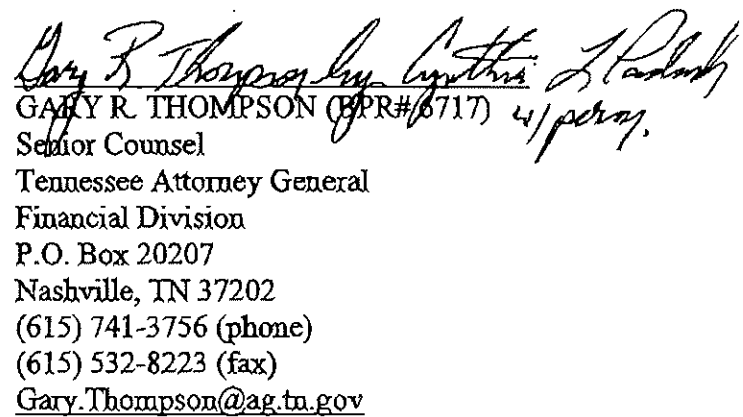 Gary R Thompson by Cynthia L
GARY R. THOMPSON (BPR# 6717) w/ perm.
Senior Counsel
Tennessee Attorney General
Financial Division
P.O. Box 20207
Nashville, TN 37202
(615) 741-3756 (phone)
(615) 532-8223 (fax)
Gary.Thompson@ag.tn.gov